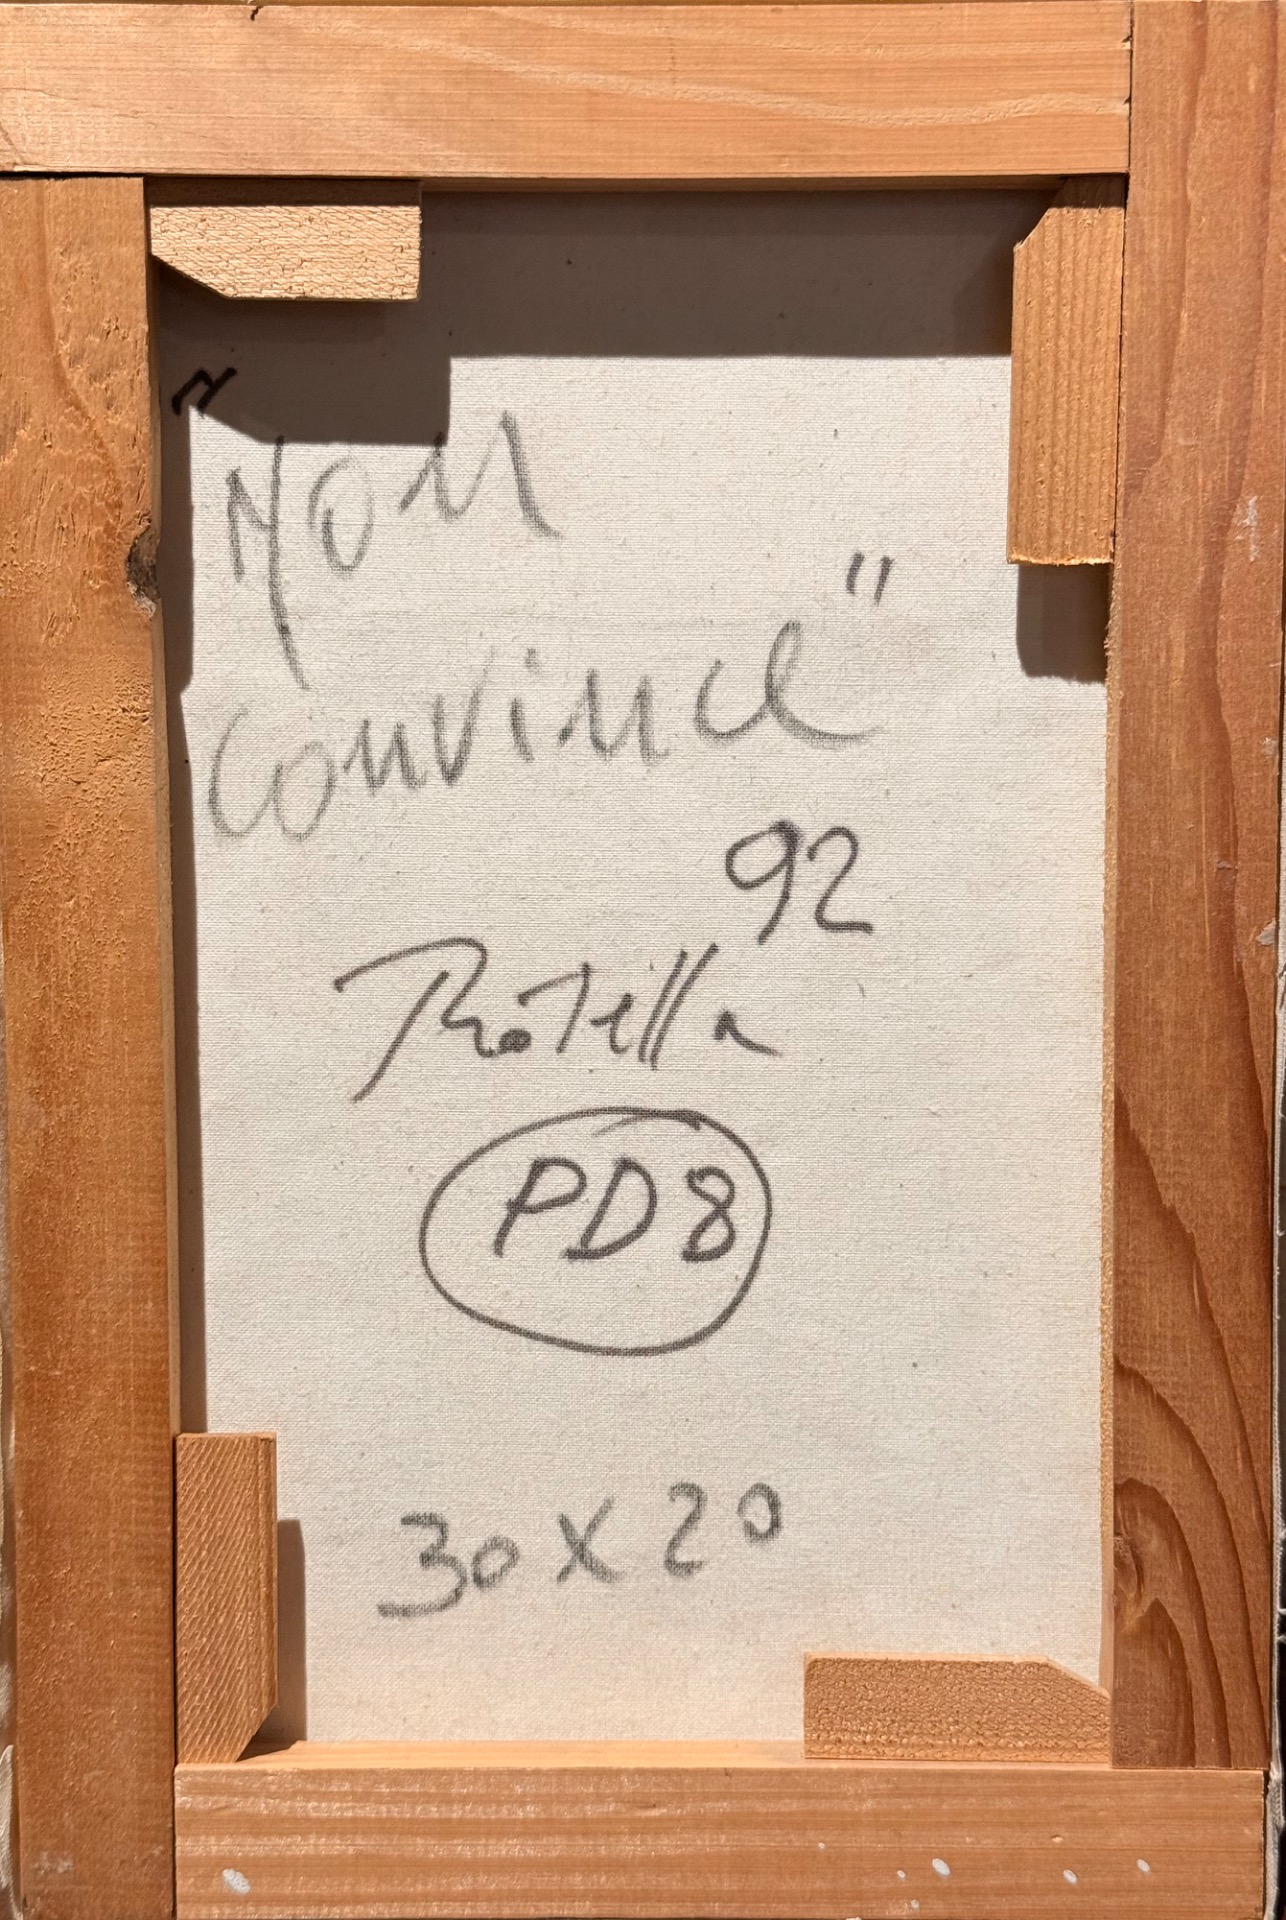 "Non
convince"
92
Rotella
PD8
30 x 20